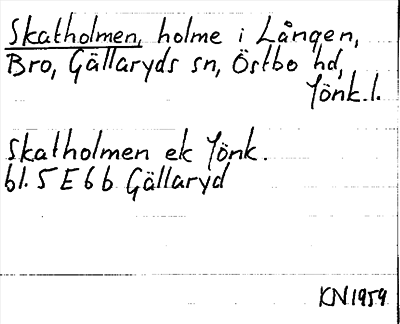 Skatholmen, holme i Lången,
Bro, Gällaryds sn, Östbo hd,
Jönk.l.
Skatholmen ek Jönk.
bl. 5 E 6 b Gällaryd
KN 1959